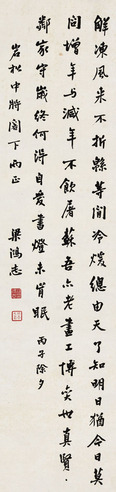 解凍風來不折綿等閒冷煖總由天了知明日猶今日莫
問增年與減年不飲屠蘇吾亦老盡工博奕世真賢
鄰家守歲終何得自愛書燈未肯眠 丙子除夕
岩松中將閣下兩正
梁鴻志